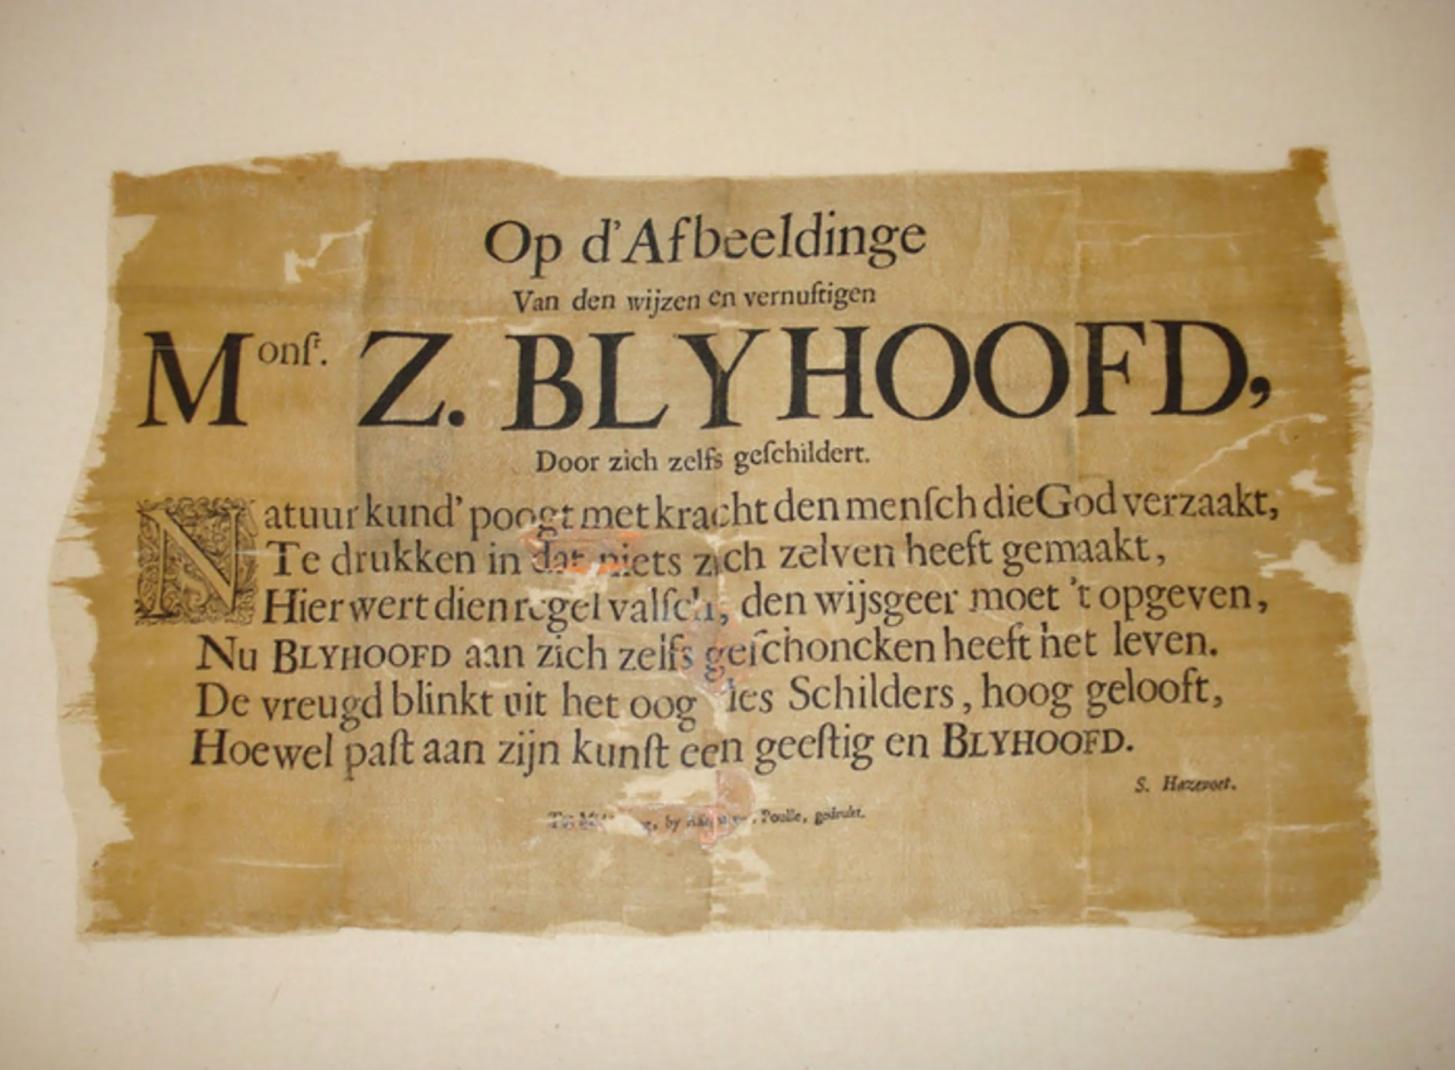 Op d'Afbeeldinge
Van den wijzen en vernuftigen
Monſr. Z. BLYHOOFD,
Door zich zelfs geſchildert.
Natuurkund' poogt met kracht den menſch die God verzaakt,
Te drukken in dat niets zich zelven heeft gemaakt,
Hier wert dien regel valſch, den wijsgeer moet 't opgeven,
Nu BLYHOOFD aan zich zelfs geſchoncken heeft het leven.
De vreugd blinkt uit het oog des Schilders, hoog gelooft,
Hoe wel paſt aan zijn kunſt een geeſtig en BLYHOOFD.
S. Hazevoet.
by Poulle, gedrukt.